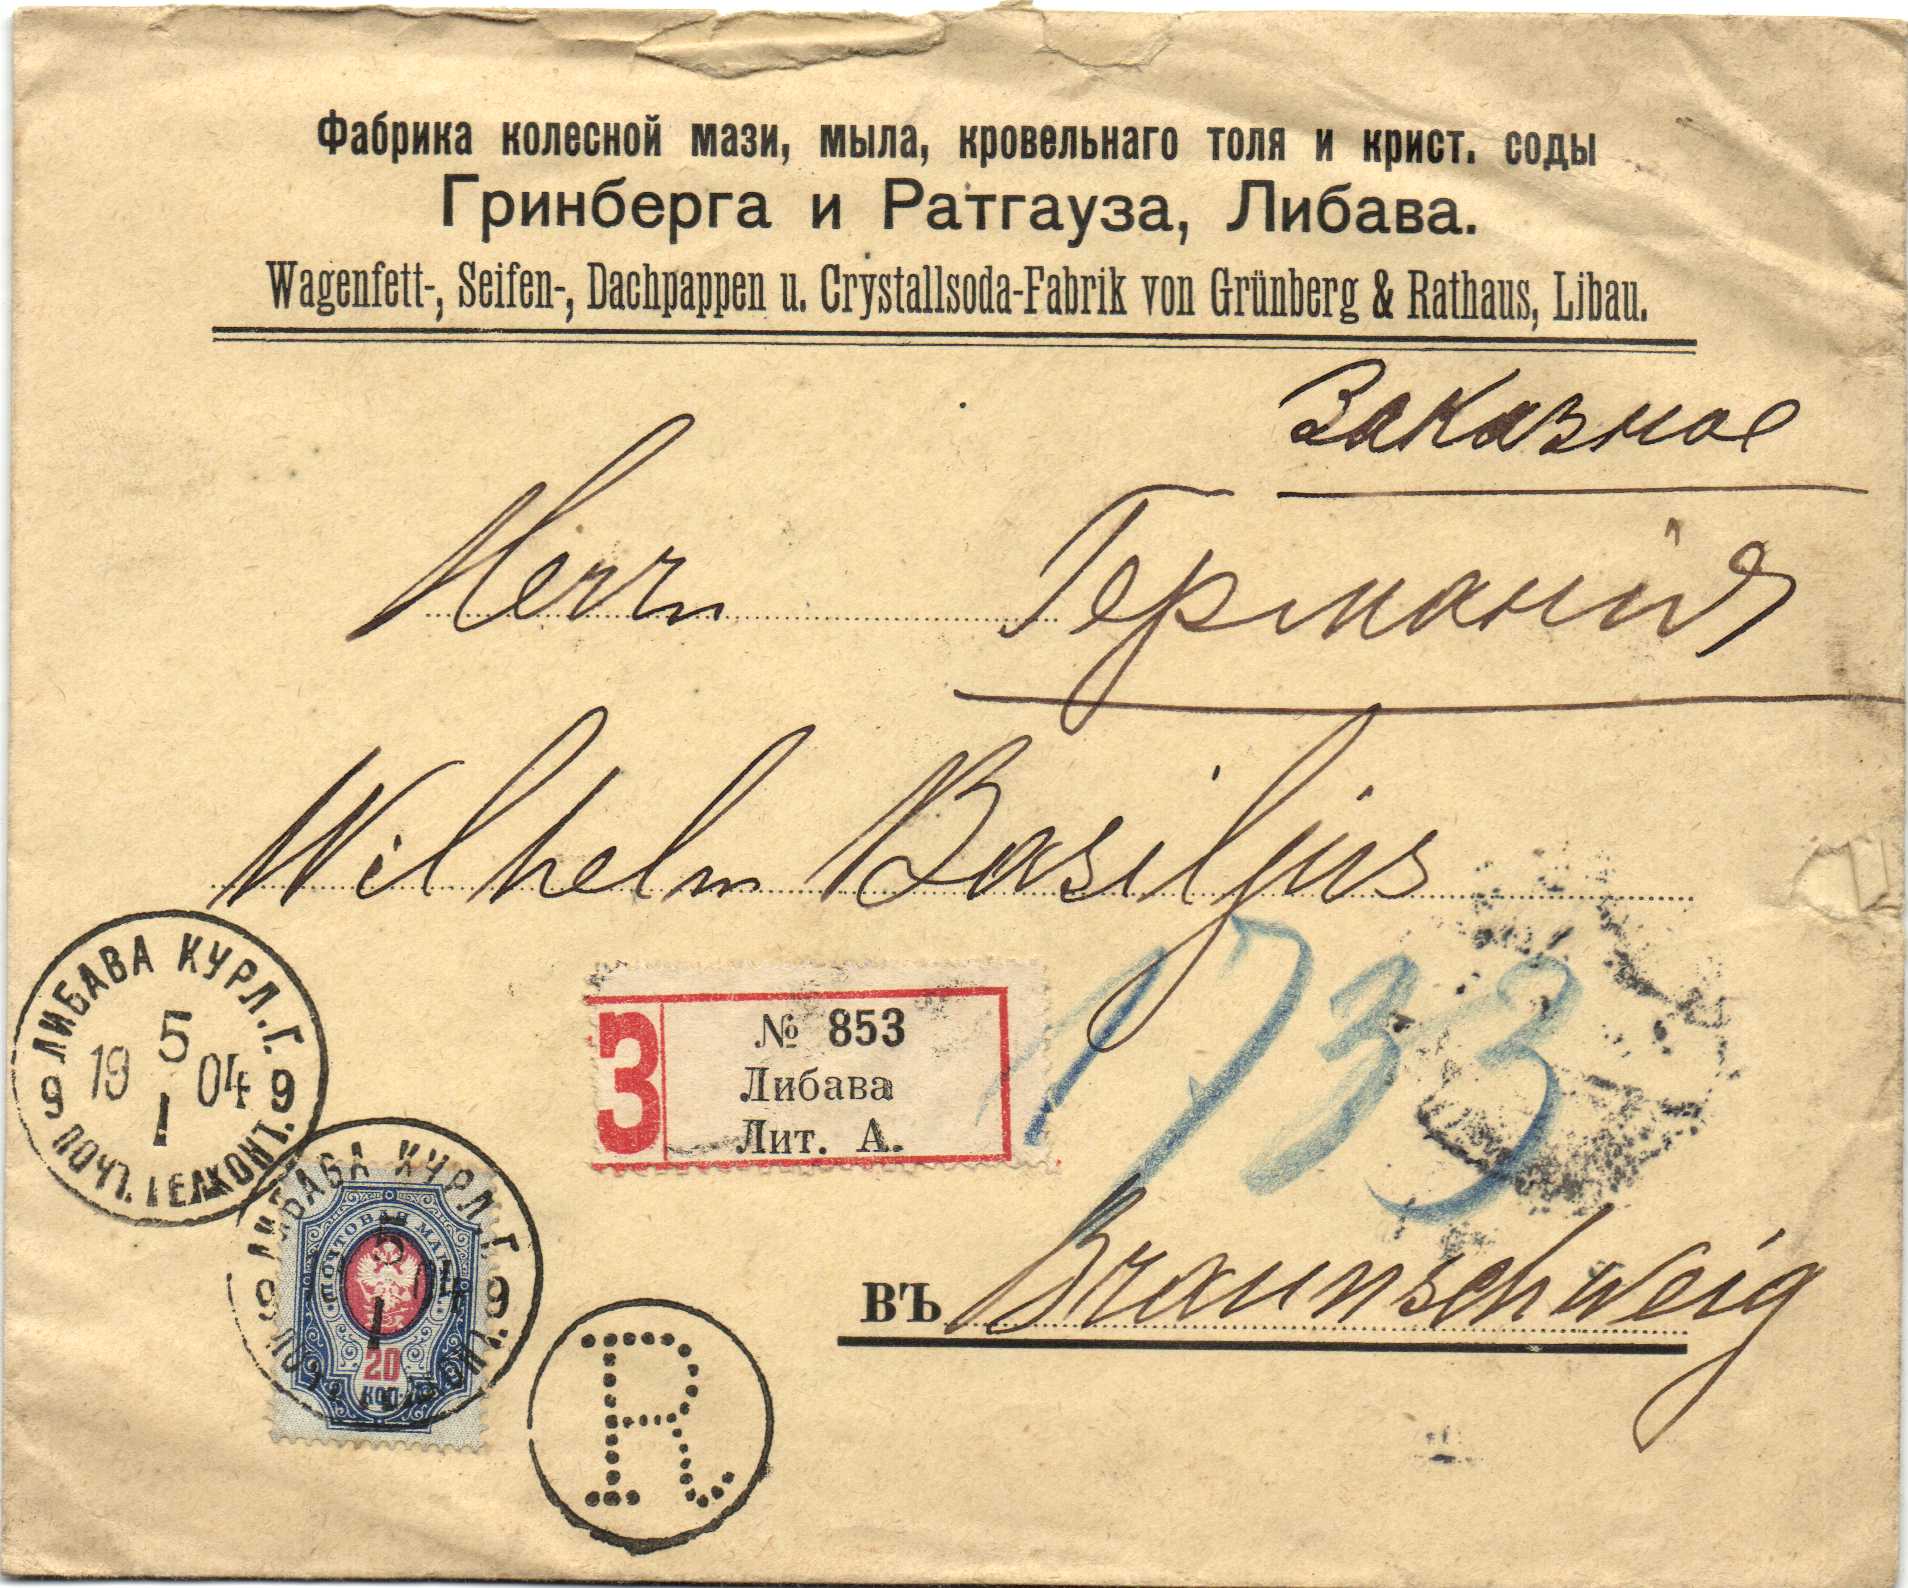 Фабрика колесной мази, мыла, кровельнаго толя и крист. соды
Гринберга и Ратгауза, Либава.
Wagenfett-, Seifen-, Dachpappen u. Crystallsoda-Fabrik von Grünberg & Rathaus, Libau.
Заказное
Herrn
Германія
Wilhelm Basiljus
ЛИБАВА КУРЛ. Г.
5
19 04
I
9 9
ПОЧТ. ТЕЛ. КОНТ.
З
№ 853
Либава
Лит. А.
1733
въ Braunschweig
ЛИБАВА КУРЛ. Г.
5
04
I
9 9
ПОЧТОВАЯ МАРКА
20
КОП.
R